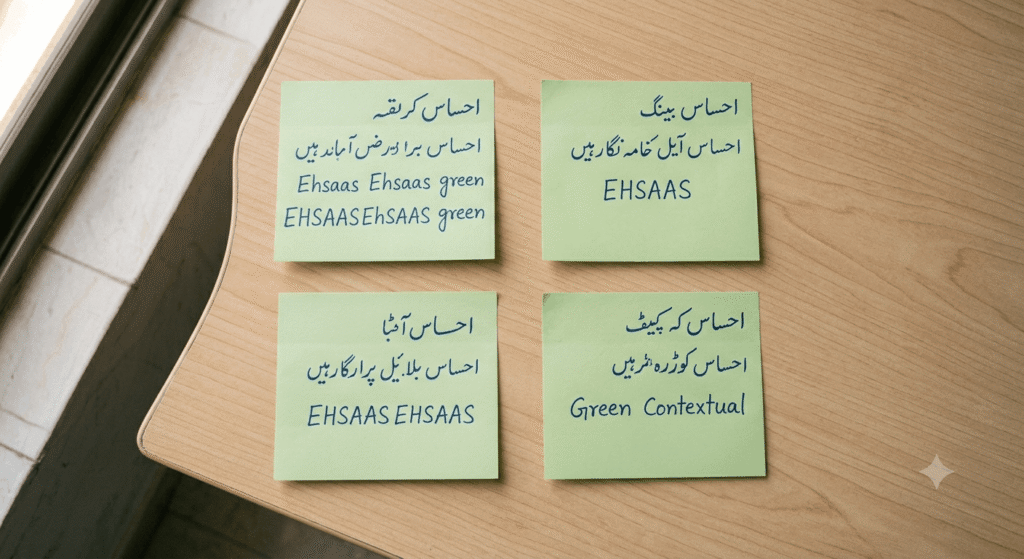 احساس کریقہ
احساس برا دبرض آباند ہیں
Ehsaas Ehsaas green
EHSAAS EhSAAS green
احساس بینگ
احساس آیل خامہ نگار ہیں
EHSAAS
احساس آفٹبا
احساس بلائیل پرارگار ہیں
EHSAAS EHSAAS
احساس کہ کپیٹ
احساس کوڑرہ ہیں
Green Contextual